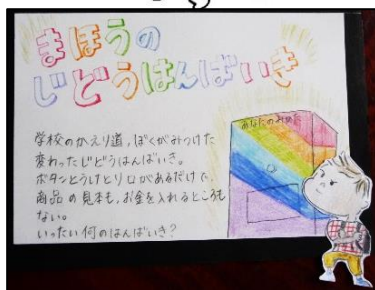 まほうの
じどうはんばいき
学校のかえり道、ぼくがみつけた
変わったじどうはんばいき。
ボタンとうけとり口があるだけで、
商品の見本も、お金を入れるところも
ない。
いったい何のはんばいき?
あなたのみかた